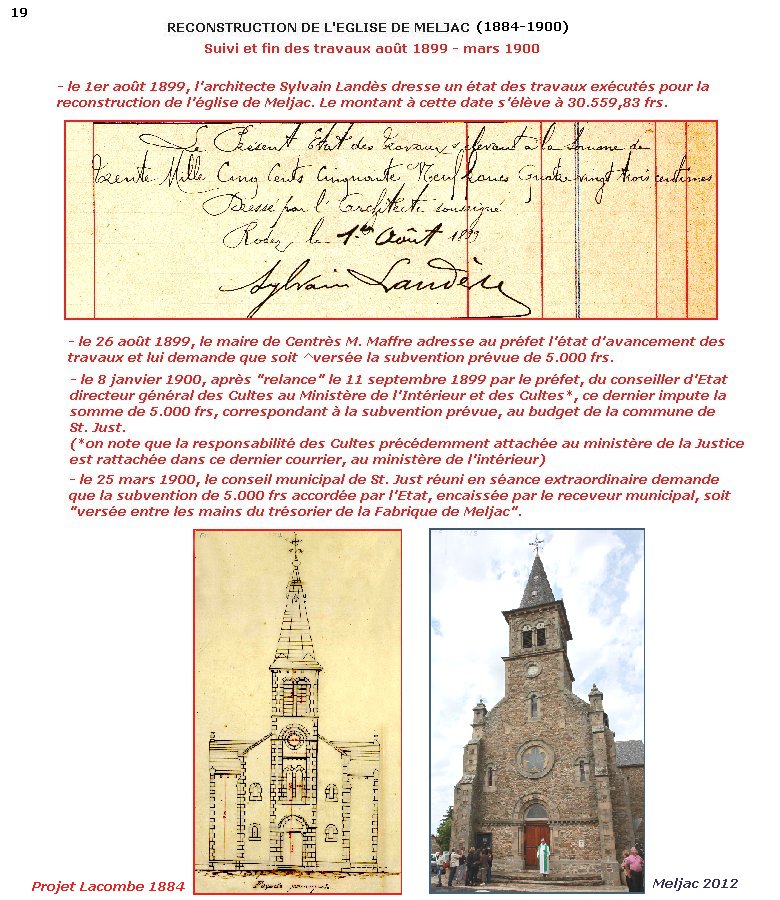 19
RECONSTRUCTION DE L'EGLISE DE MELJAC (1884-1900)
Suivi et fin des travaux août 1899 - mars 1900
- le 1er août 1899, l'architecte Sylvain Landès dresse un état des travaux exécutés pour la
reconstruction de l'église de Meljac. Le montant à cette date s'élève à 30.559,83 frs.
Le Présent Etat des Travaux s'élevant à la Somme de
Trente Mille Cinq Cents Cinquante Neuf francs Quatre vingt trois centimes
Dressé par l'architecte soussigné
Rodez le 1er Août 1899
Sylvain Landès
- le 26 août 1899, le maire de Centrès M. Maffre adresse au préfet l'état d'avancement des
travaux et lui demande que soit ^versée la subvention prévue de 5.000 frs.
- le 8 janvier 1900, après "relance" le 11 septembre 1899 par le préfet, du conseiller d'Etat
directeur général des Cultes au Ministère de l'Intérieur et des Cultes*, ce dernier impute la
somme de 5.000 frs, correspondant à la subvention prévue, au budget de la commune de
St. Just.
(*on note que la responsabilité des Cultes précédemment attachée au ministère de la Justice
est rattachée dans ce dernier courrier, au ministère de l'intérieur)
- le 25 mars 1900, le conseil municipal de St. Just réuni en séance extraordinaire demande
que la subvention de 5.000 frs accordée par l'Etat, encaissée par le receveur municipal, soit
"versée entre les mains du trésorier de la Fabrique de Meljac".
Façade principale
Projet Lacombe 1884
Meljac 2012